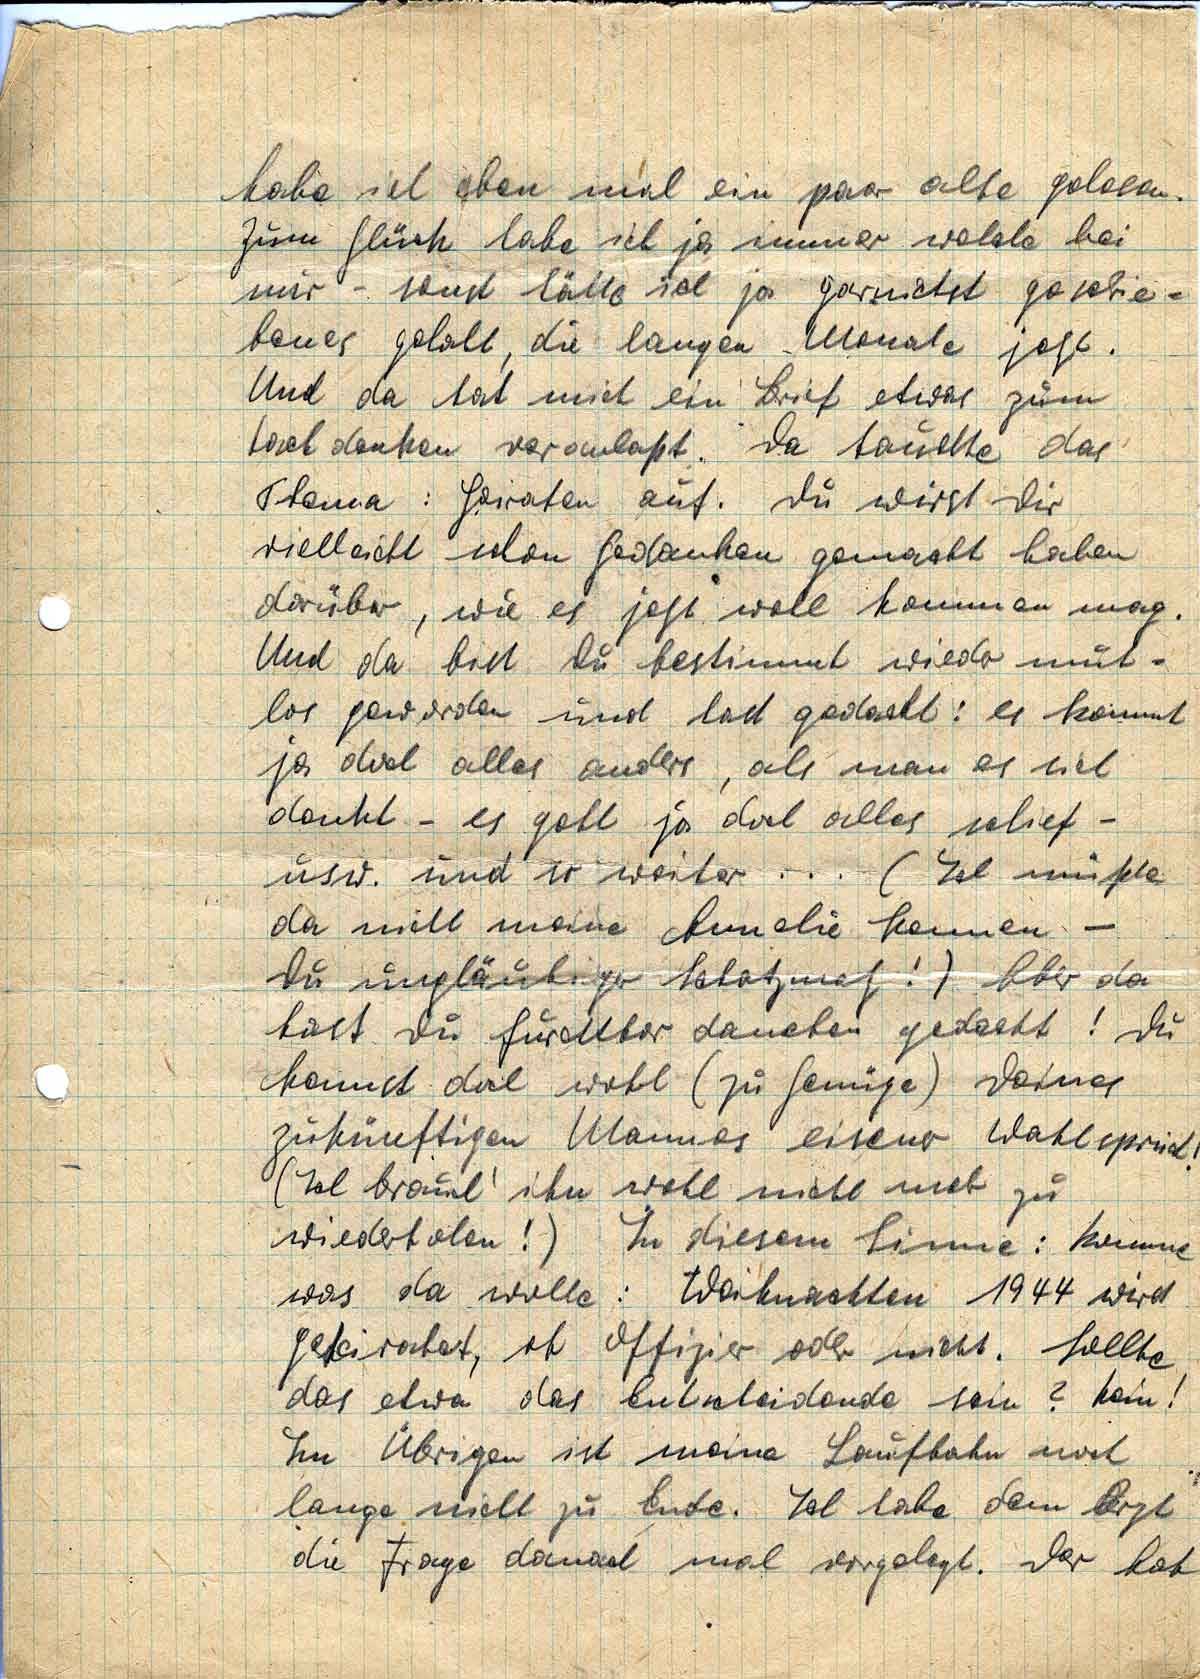 habe ich eben mal ein paar alte gelesen.
Zum Glück habe ich ja immer welche bei
mir - sonst hätte ich ja garnichts geschrie-
benes gehabt, die langen Monate jetzt.
Und da hat mich ein Brief etwas zum
Nachdenken veranlaßt. Da tauchte das
Thema: Heiraten auf. Du wirst Dir
vielleicht schon Gedanken gemacht haben
darüber, wie es jetzt wohl kommen mag.
Und da bist Du bestimmt wieder mut-
los geworden und hast gedacht: es kommt
ja doch alles anders, als man es sich
denkt - es geht ja doch alles schief -
usw. und so weiter ... (Ich müßte
da nicht meine Annelie kennen -
Du ungläubiger Schatzmatz!) Aber da
hast Du furchtbar daneben gedacht! Du
kennst doch wohl (zu Genüge) Deines
zukünftigen Mannes eisener Wahlspruch!
(Ich brauch' ihn wohl nicht mehr zu
wiederholen!) In diesem Sinne: komme
was da wolle: Weihnachten 1944 wird
geheiratet, ob Offizier oder nicht. Sollte
das etwa das Entscheidende sein? Nein!
Im Übrigen ist meine Laufbahn noch
lange nicht zu Ende. Ich habe dem Arzt
die Frage danach mal vorgelegt. Der hat